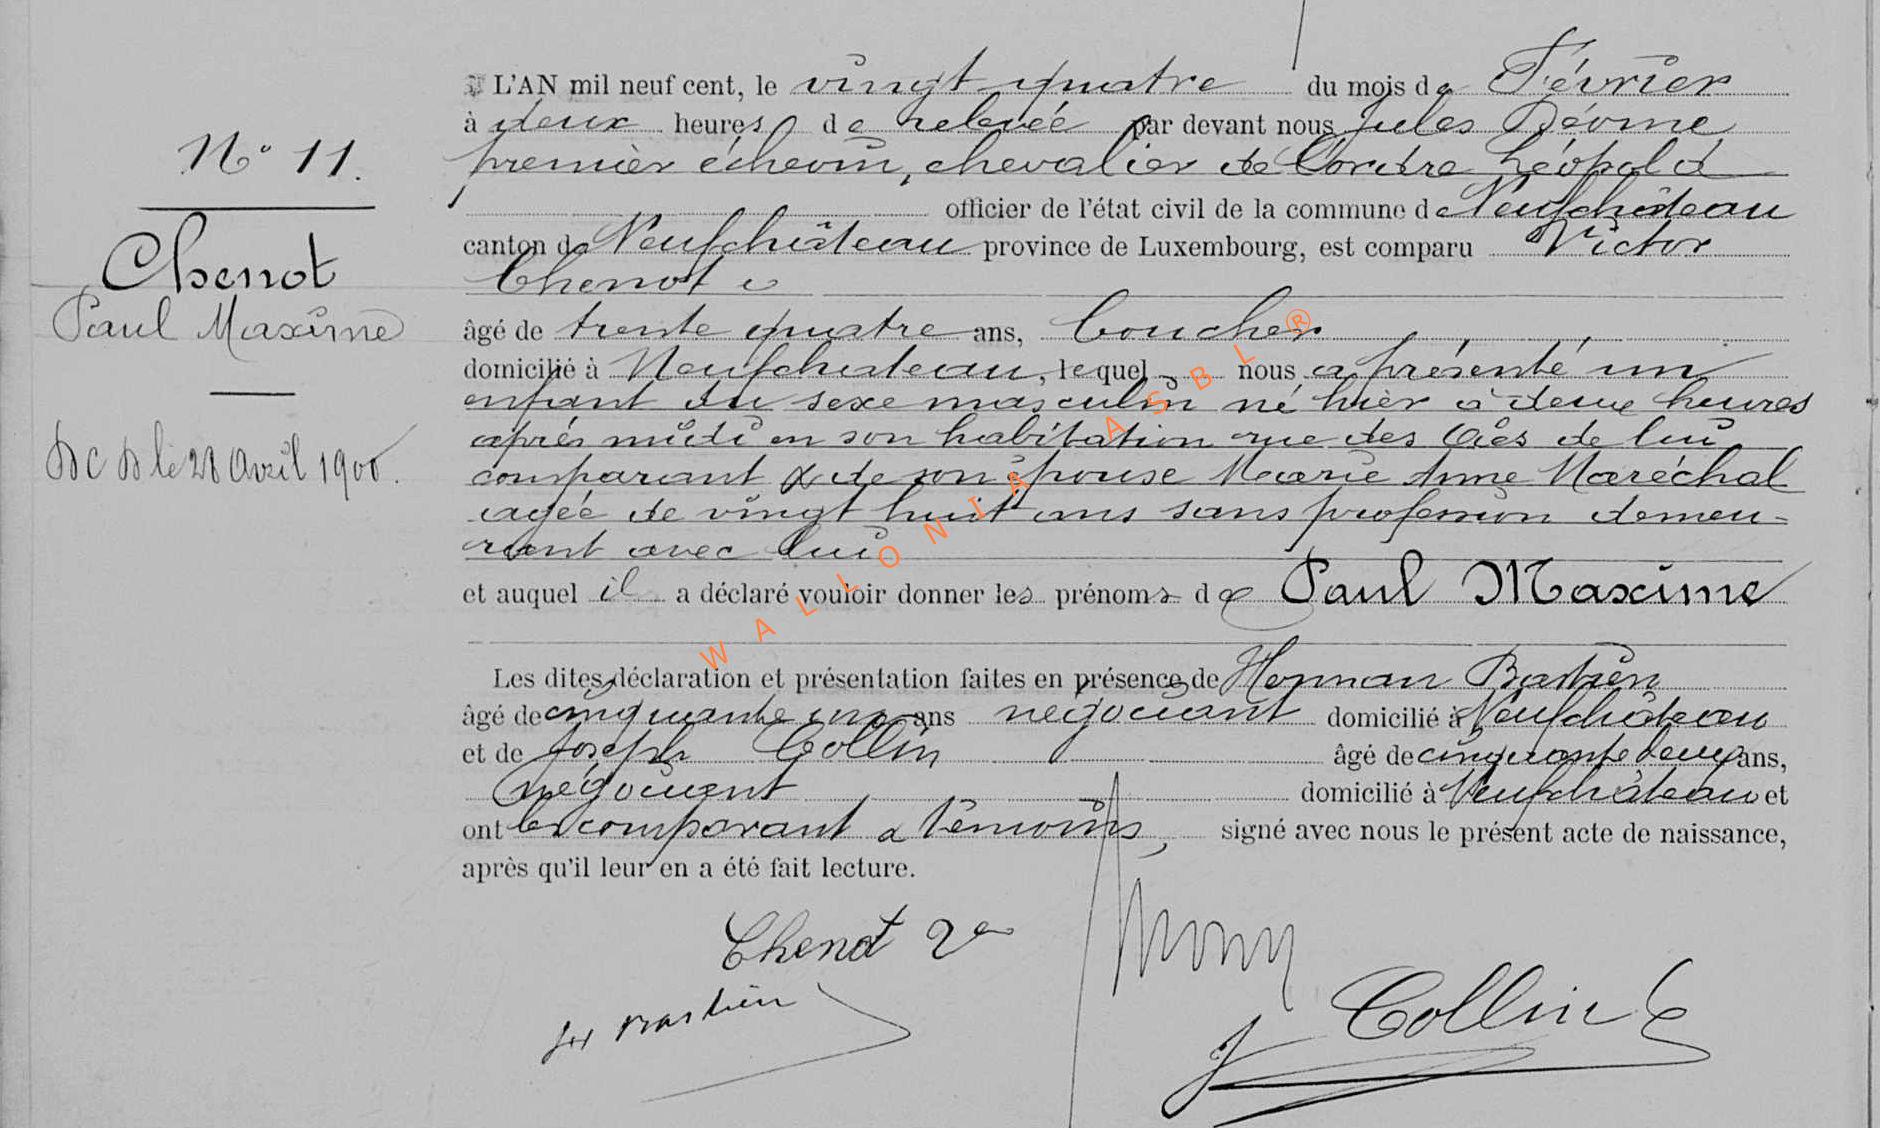 N° 11.
Chenot
Paul Maxime
DCD le 28 Avril 1900.
L'AN mil neuf cent, le vingt quatre du mois de Février
à deux heures de relevée par devant nous Jules
premier échevin, chevalier de l'ordre Léopold
officier de l'état civil de la commune de Neufchâteau
canton de Neufchâteau province de Luxembourg, est comparu Victor
Chenot
âgé de trente quatre ans, boucher
domicilié à Neufchateau, lequel nous a présenté un
enfant du sexe masculin né hier à deux heures
après midi en son habitation rue des de lui
comparant & de son épouse Marie Anne Maréchal
agée de vingt huit ans sans profession demeu=
rant avec lui
et auquel il a déclaré vouloir donner les prénoms de Paul Maxime
Les dites déclaration et présentation faites en présence de Herman Bastien
âgé de cinquante un ans négociant domicilié à Neufchâteau
et de Joseph Collin âgé de cinquante deux ans,
négociant domicilié à Neufchâteau et
ont les comparant & témoins, signé avec nous le présent acte de naissance,
après qu'il leur en a été fait lecture.
Chenot
Bastien
J Collin
WALLONIA ASBL ®